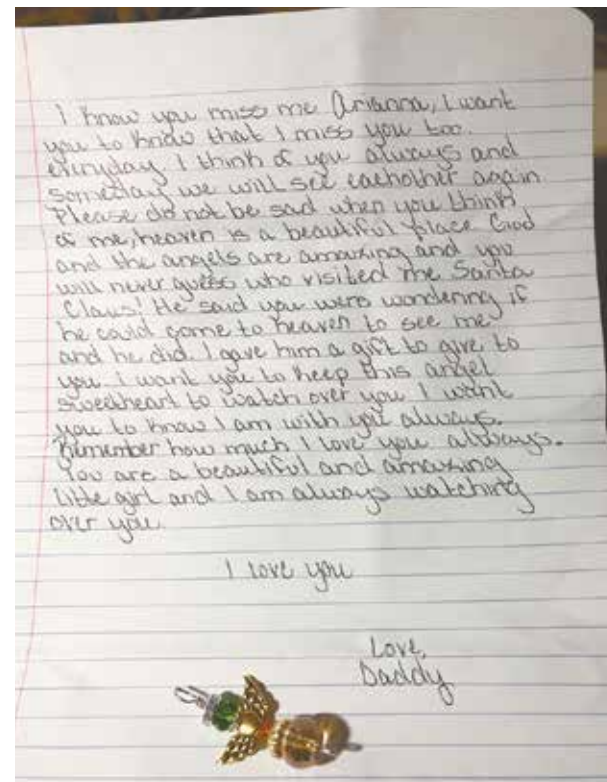 I know you miss me Arianna, I want
you to know that I miss you too.
everyday I think of you always and
someday we will see eachother again.
Please do not be sad when you think
of me, heaven is a beautiful place God
and the angels are amazing and you
will never guess who visited me Santa
Claus! He said you were wondering if
he could come to heaven to see me
and he did. I gave him a gift to give to
you. I want you to keep this angel
sweetheart to watch over you I want
you to know I am with you always.
Remember how much I love you always.
You are a beautiful and amazing
little girl and I am always watching
over you.
I love you
Love,
Daddy